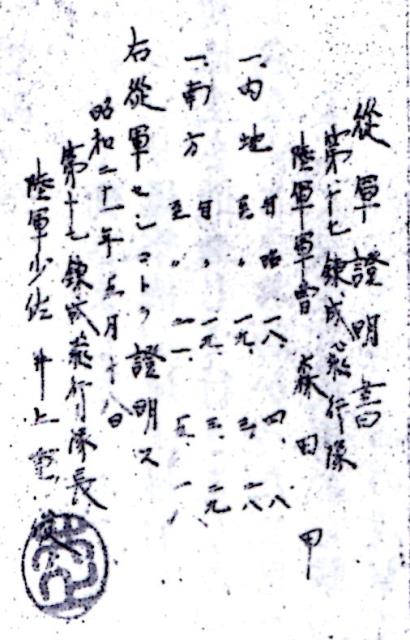 從軍證明書
第十七錬成飛行隊
陸軍軍曹 森田 甲
一、内地 自昭一八、四、八
至〃一九、三、二八
一、南方 自〃一九、三、二九
至〃二一、五、一八
右從軍セシコトヲ證明ス
昭和二十一年五月十八日
第十七錬成飛行隊長
陸軍少佐 井上